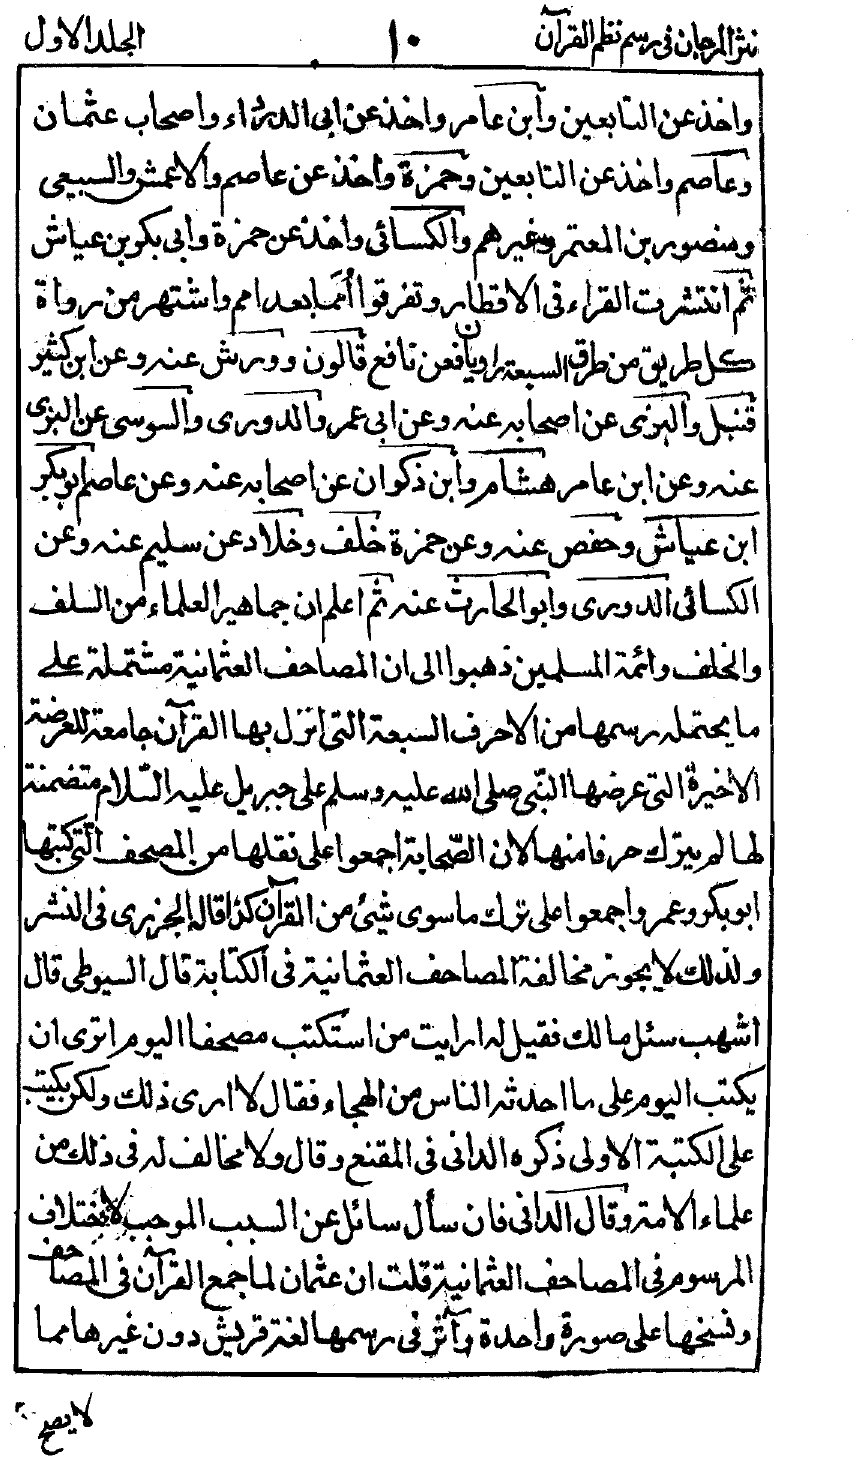 نثر المرجان فى رسم نظم القرآن ١٠ الجلد الاول
واخذ عن التابعين وابن عامر واخذ عن ابى الدرداء واصحاب عثمان
وعاصم واخذ عن التابعين وحمزة واخذ عن عاصم والاعمش والسبيعى
ومنصور بن المعتمر وغيرهم والكسائى واخذ عن حمزة وابى بكر بن عياش
ثم انتشرت القراء فى الاقطار وتفرقوا امما بعد امم واشتهر من رواة
كل طريق من طرق السبعة راويان فعن نافع قالون وورش عنه وعن ابن كثير
قنبل والبزى عن اصحابه عنه وعن ابى عمر والدورى والسوسى عن اليزى
عنه وعن ابن عامر هشام وابن ذكوان عن اصحابه عنه وعن عاصم ابو بكر
ابن عياش وحفص عنه وعن حمزة خلف وخلاد عن سليم عنه وعن
الكسائى الدورى وابو الحارث عنه ثم اعلم ان جماهير العلماء من السلف
والخلف وائمة المسلمين ذهبوا الى ان المصاحف العثمانية مشتملة على
ما يحتمله رسمها من الاحرف السبعة التى انزل بها القرآن جامعة للعرضة
الاخيرة التى عرضها النبى صلى الله عليه وسلم على جبريل عليه السّلام متضمنة
لها لم يترك حرفا منها لان الصّحابة اجمعوا على نقلها من المصحف الّتى كتبها
ابو بكر وعمر واجمعوا على ترك ما سوى شيئ من القرآن كذا قاله الجزرى فى النشر
ولذلك لا يجوز مخالفة المصاحف العثمانية فى الكتابة قال السيوطى قال
اشهب سئل مالك فقيل له ارايت من استكتب مصحفا اليوم اترى ان
يكتب اليوم على ما احدثه الناس من الهجاء فقال لا ارى ذلك ولكن يكتب
على الكتبة الاولى ذكره الدانى فى المقنع وقال ولا مخالف له فى ذلك من
علماء الامة وقال الدانى فان سأل سائل عن السبب الموجب لاختلاف
المرسوم فى المصاحف العثمانية قلت ان عثمان لما جمع القرآن فى المصاحف
ونسخها على صورة واحدة وآثر فى رسمها لغة قريش دون غيرها مما
لا يصح